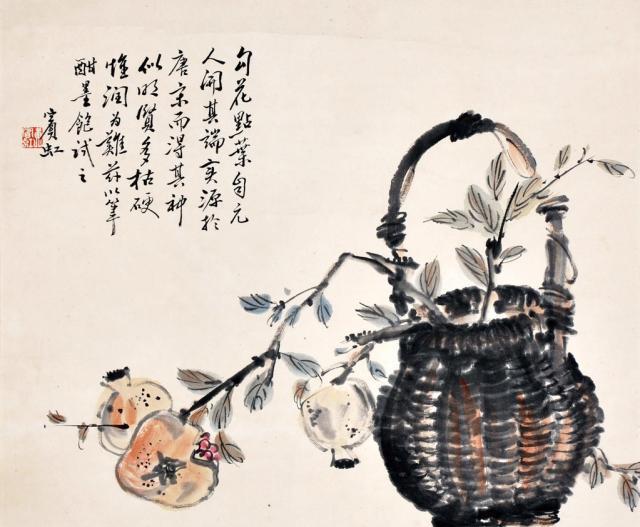 勾花點葉自元
人開其端實源於
唐宋而得其神
似明賢多枯硬
惟潤為難茲以筆
酣墨飽試之
賓虹